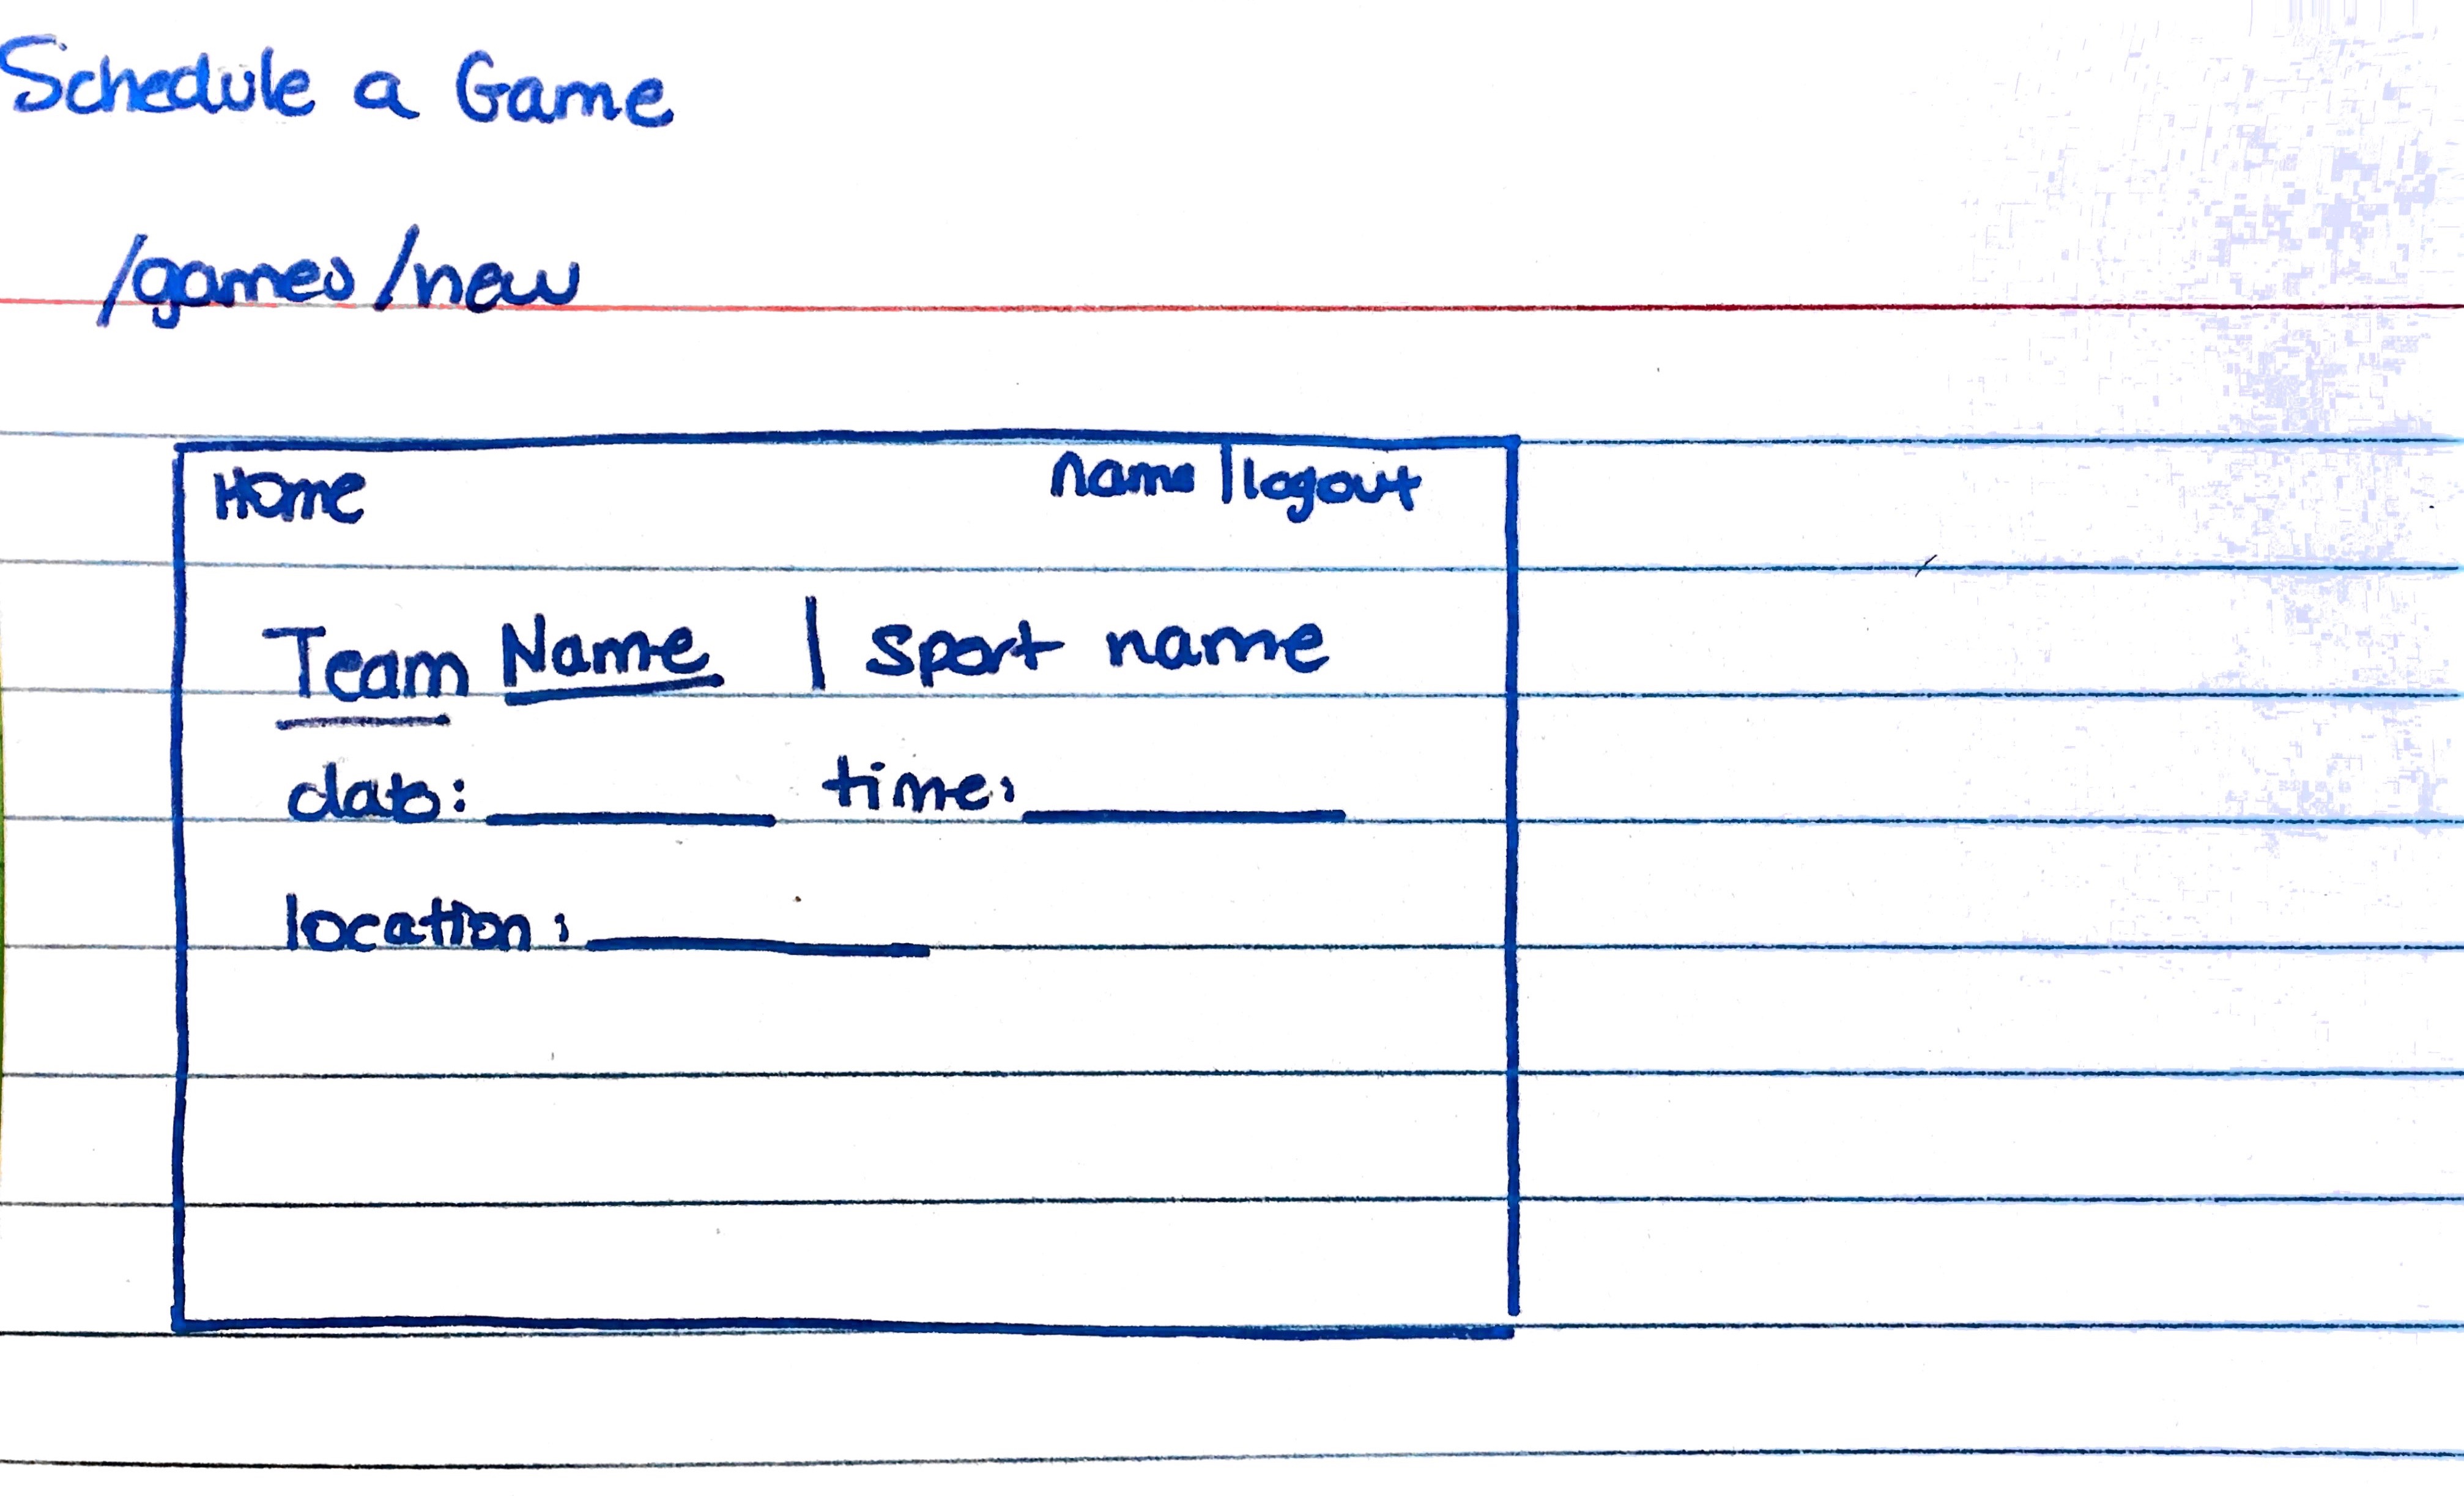 Schedule a Game
/games/new
Home name | logout
Team Name | sport name
date: ________ time: ________
location: ________